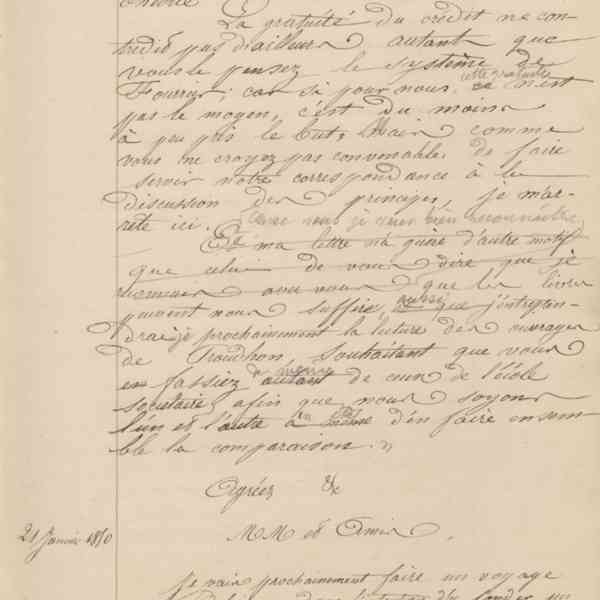 La gratuité du crédit ne con-
tredit pas d'ailleurs autant que
vous le pensez le système de
Fourier; car si pour nous, ce cette gratuité n'est
pas le moyen, c'est du moins
à peu près le but, Mais comme
vous ne croyez pas convenable de faire
servir notre correspondance à la
discussion des principes, je m'ar-
rête ici. Avec vous je veux bien reconnaître
Et ma lettre n'a guère d'autre motif
que celui de vous dire que je
avec vous que les livres
peuvent nous suffire aussi que j'entrepren-
drai je prochainement la lecture des ouvrages
de Proudhon, souhaitant que vous
en fassiez autant de même de ceux de l'école
sociétaire, afin que nous soyons
l'un et l'autre à même d'en faire ensem-
ble la comparaison. »
Agréez &c
21 Janvier 1850
MM et Amis,
Je vais prochainement faire un voyage